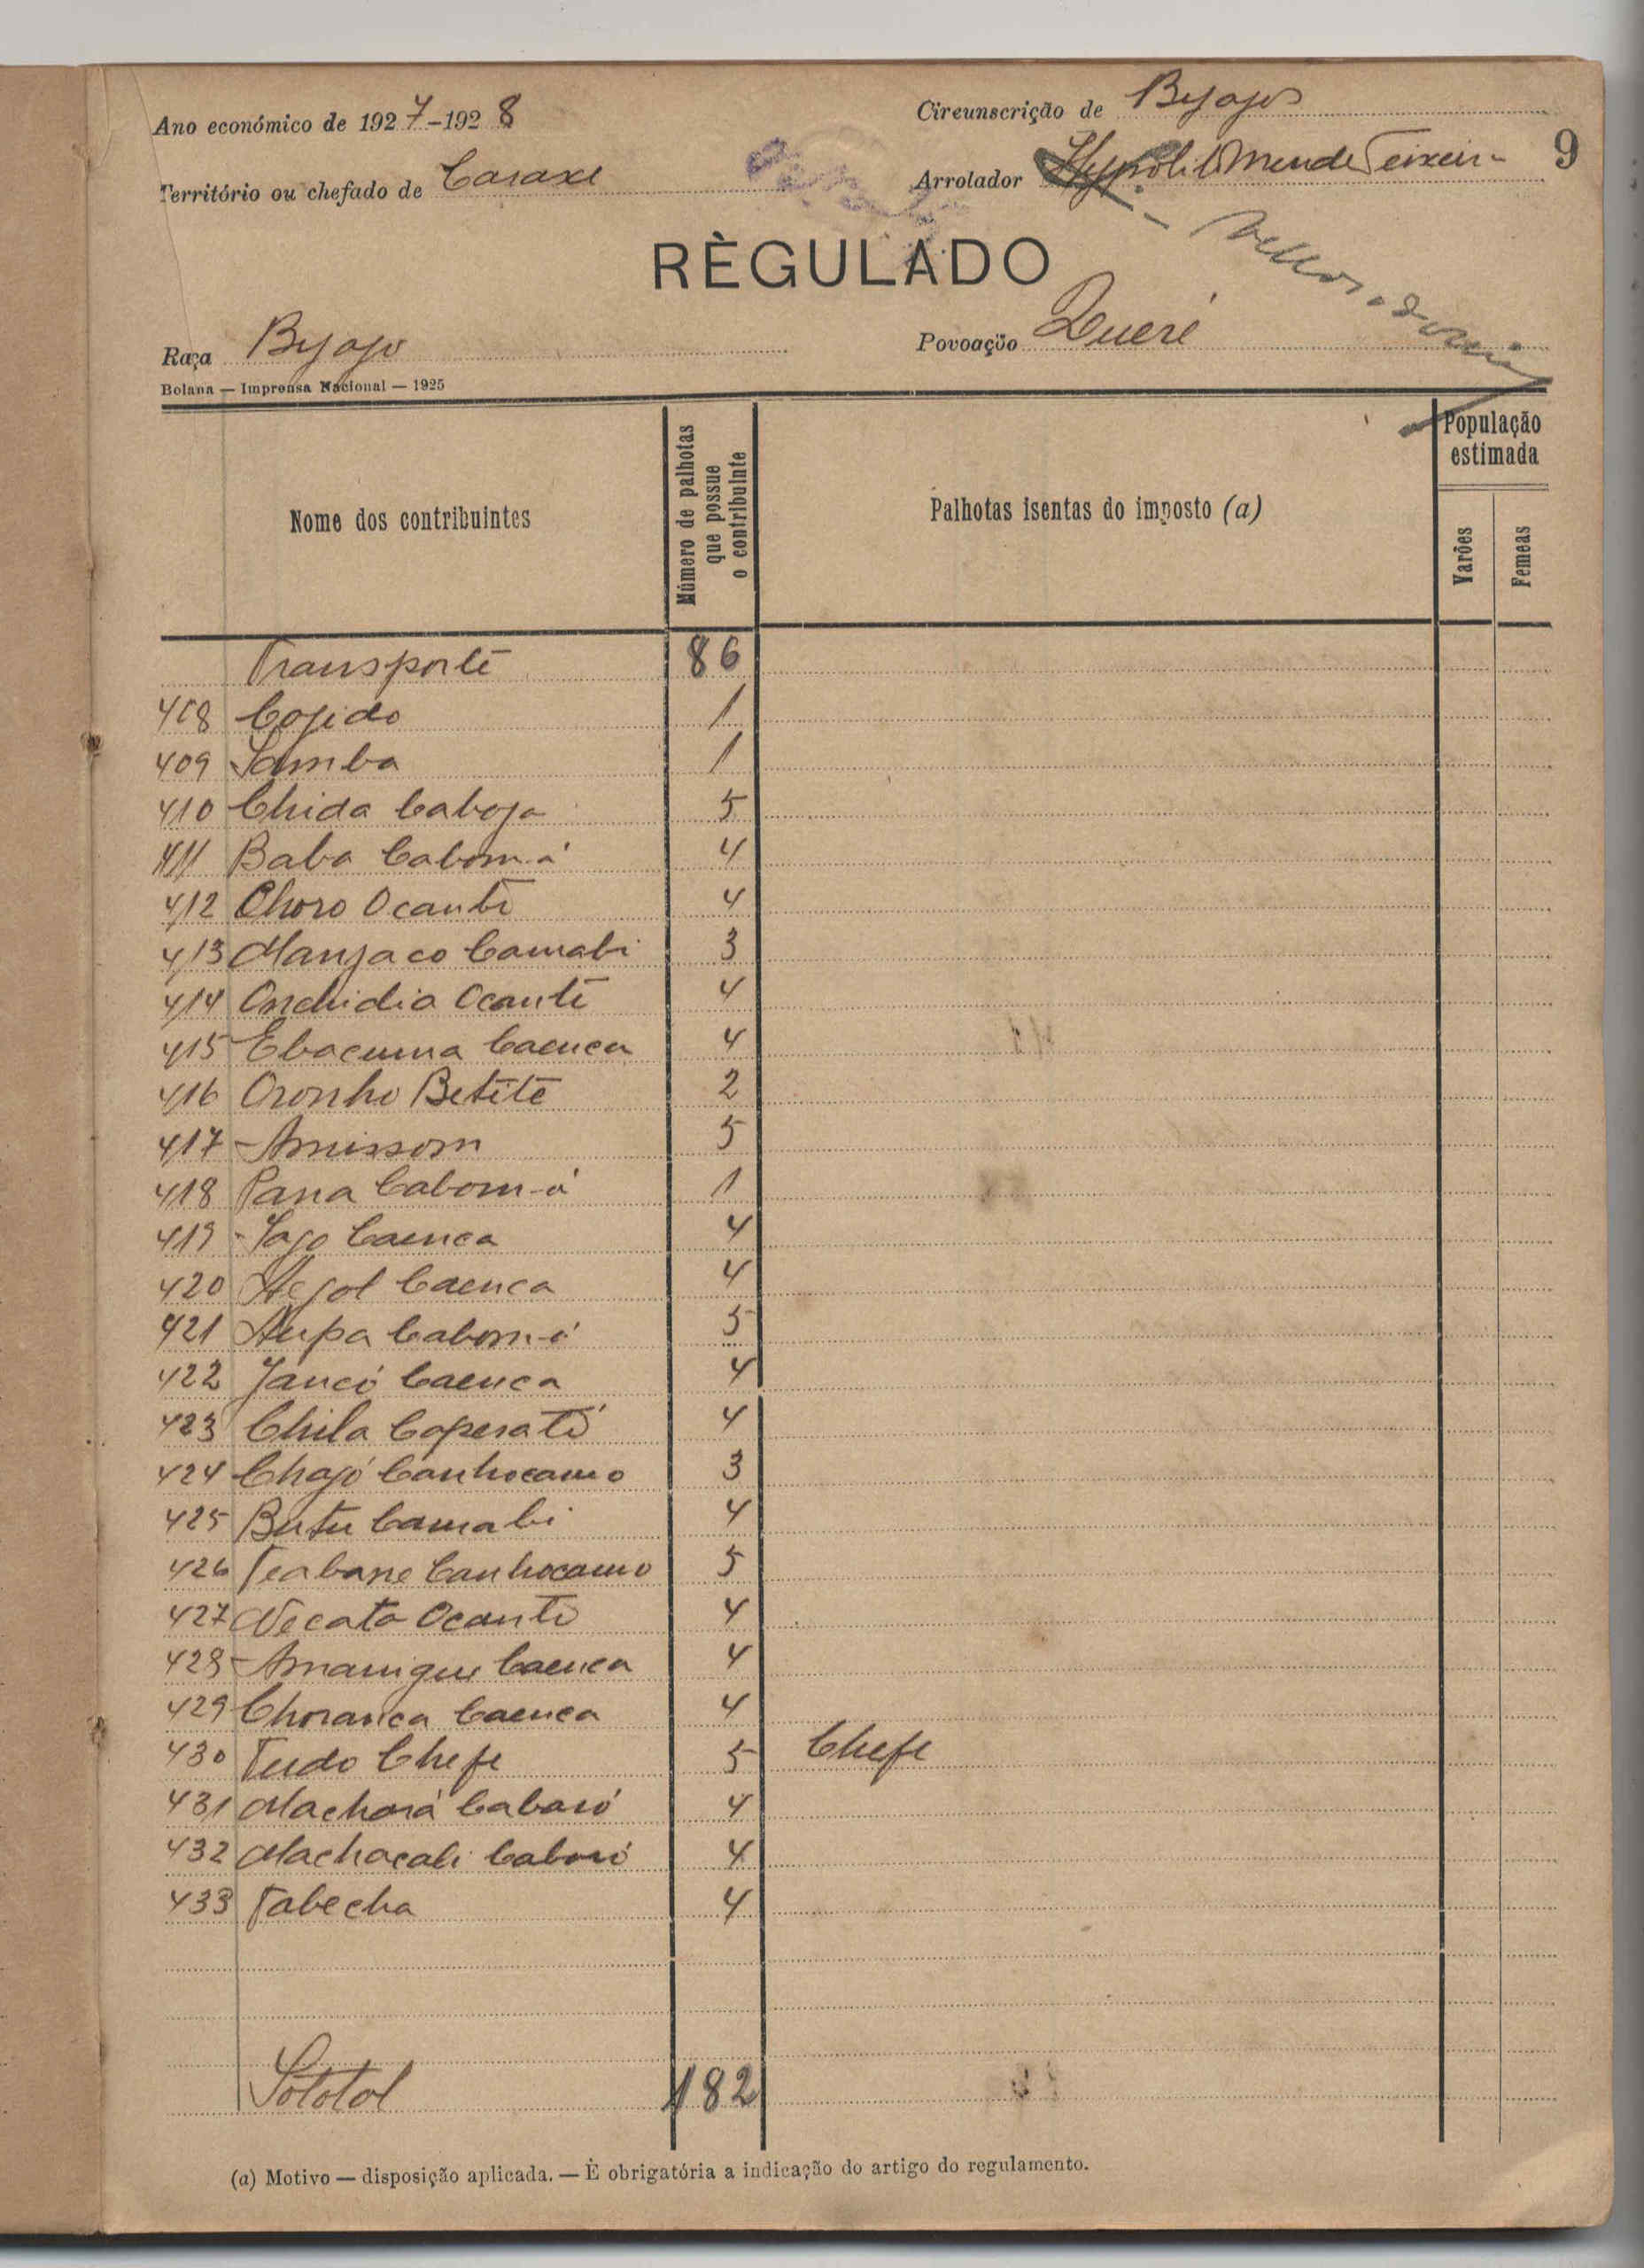 Ano económico de 1927-1928
Circunscrição de Byagos
9
Território ou chefado de Caraxe
Arrolador Hypolito Mendes Teixeira
RÈGULADO
Raça Byago
Povoação Queré
Bolama — Imprensa Nacional — 1925
Nome dos contribuintes
Número de palhotas que possue o contribuinte
Palhotas isentas do imposto (a)
População estimada
Varões
Femeas
Transporte 86
408 Cogido 1
409 Samba 1
410 Chida Caboja 5
411 Baba Cabom-á 4
412 Choro Ocante 4
413 Manjaco Camabi 3
414 Onchidia Ocante 4
415 Ebacuma Caenca 4
416 Oronho Betéte 2
417 Amissom 5
418 Pana Cabom-á 1
419 Jago Caenca 4
420 Caenca 4
421 Aupa Cabom-á 5
422 Jancó Caenca 4
423 Chila 4
424 Chagó Canhocamo 3
425 Butu Camabi 4
426 Canhocamo 5
427 Necato Ocante 4
428 Amanigue Caenca 4
429 Choranca Caenca 4
430 Tudo Chefe 5 Chefe
431 Machorá Cabaró 4
432 Machacali Cabaró 4
433 Tabecha 4
Sototal 182
(a) Motivo — disposição aplicada. — È obrigatória a indicação do artigo do regulamento.